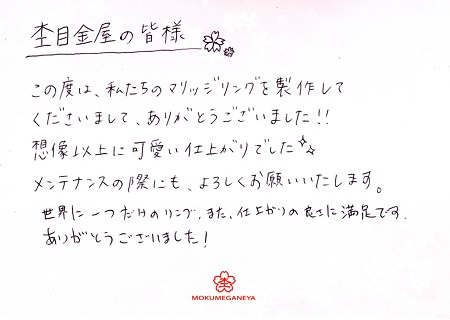 杢目金屋の皆様
この度は、私たちのマリッジリングを製作して
くださいまして、ありがとうございました!!
想像以上に可愛い仕上がりでした
メンテナンスの際にも、よろしくお願いいたします。
世界に一つだけのリング、また、仕上がりの良さに満足です。
ありがとうございました!
杢
MOKUMEGANEYA